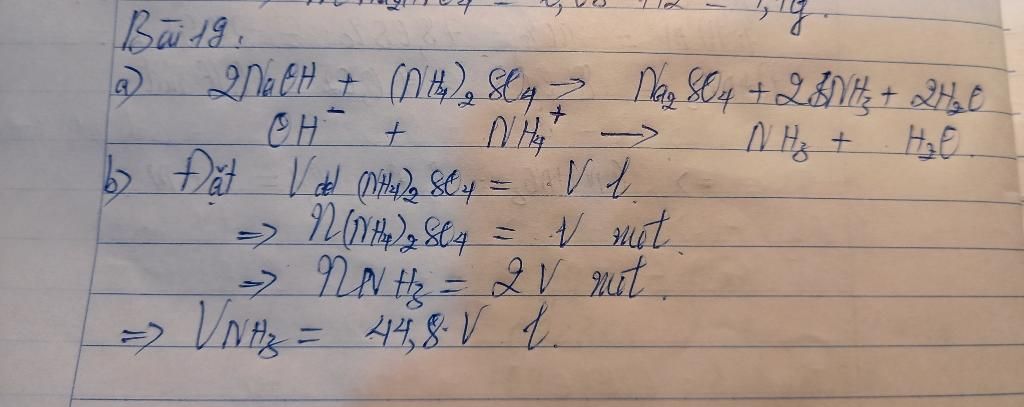 = 1,1g.
Bài 19:
a) 2NaOH + (NH₄)₂SO₄ → Na₂SO₄ + 2NH₃ + 2H₂O
OH⁻ + NH₄⁺ → NH₃ + H₂O
b) Đặt V dd (NH₄)₂SO₄ = V l
=> n(NH₄)₂SO₄ = V mol.
=> nNH₃ = 2V mol.
=> VNH₃ = 44,8.V l.